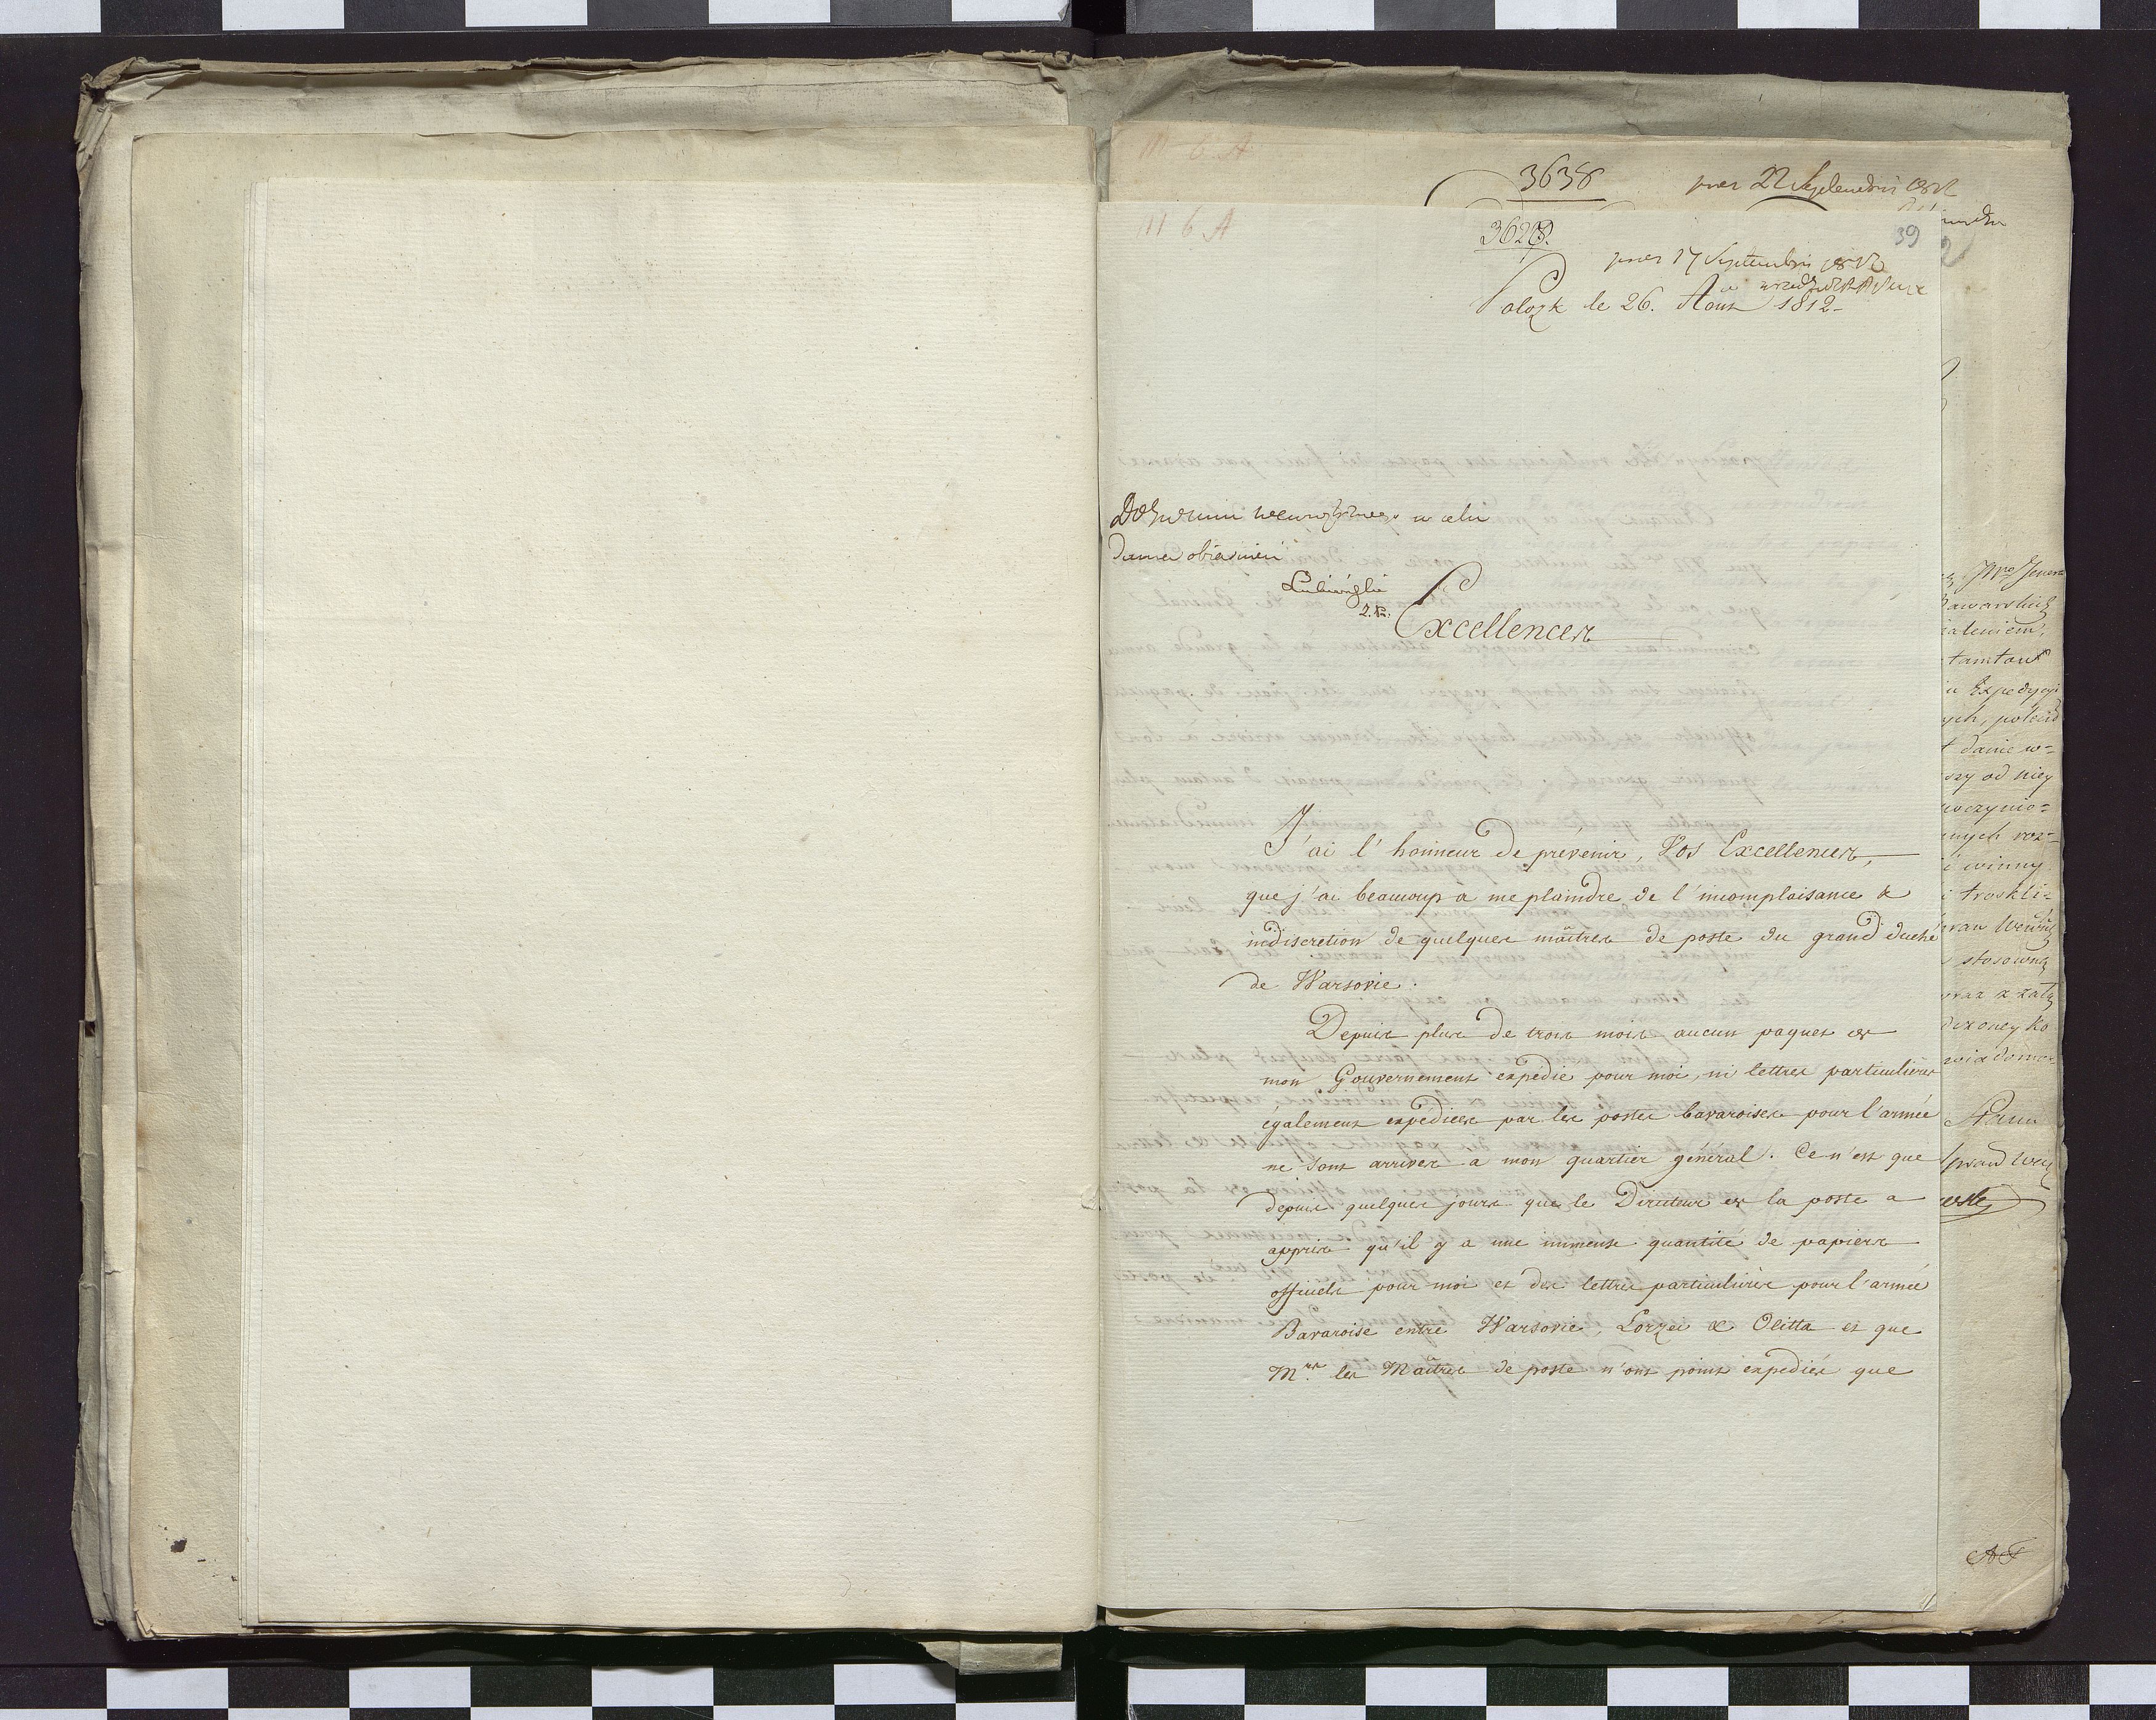 M 6 A
3638
prae: 22 Septembris 1812
M 6 A
3628.
39
prae: 17 Septembris 1812
Polozk le 26. Août 1812.
w celu
dania obiasnień
Excellences
J'ai l'honneur de prévenir, Vos Excellences,
que j'ai beaucoup à me plaindre de l'incomplaisance &
indiscretion de quelques maîtres de poste du grand duché
de Warsovie.
Depuis plus de trois mois aucun paquet de
mon Gouvernement expédié pour moi, ni lettres particulieres
également expédiées par les postes bavaroises pour l'armée
ne sont arrivés à mon quartier général. Ce n'est que
depuis quelques jours que le Directeur de la poste a
appris qu'il y a une immense quantité de papiers
officiels pour moi et des lettres particulières pour l'armée
Bavaroise entre Warsovie, Lorzei & Olitta et que
Mrs. les Maîtres de poste n'ont point expédiés que
Jenera
Bawarskich
żaleniem,
tamtou
Expedycyi
ych, polecid
danie w=
szy od niey
uczynio=
nych roz=
winny
i troskli=
stosowną
wraz z załą
dzoney Ko
wiadomo=